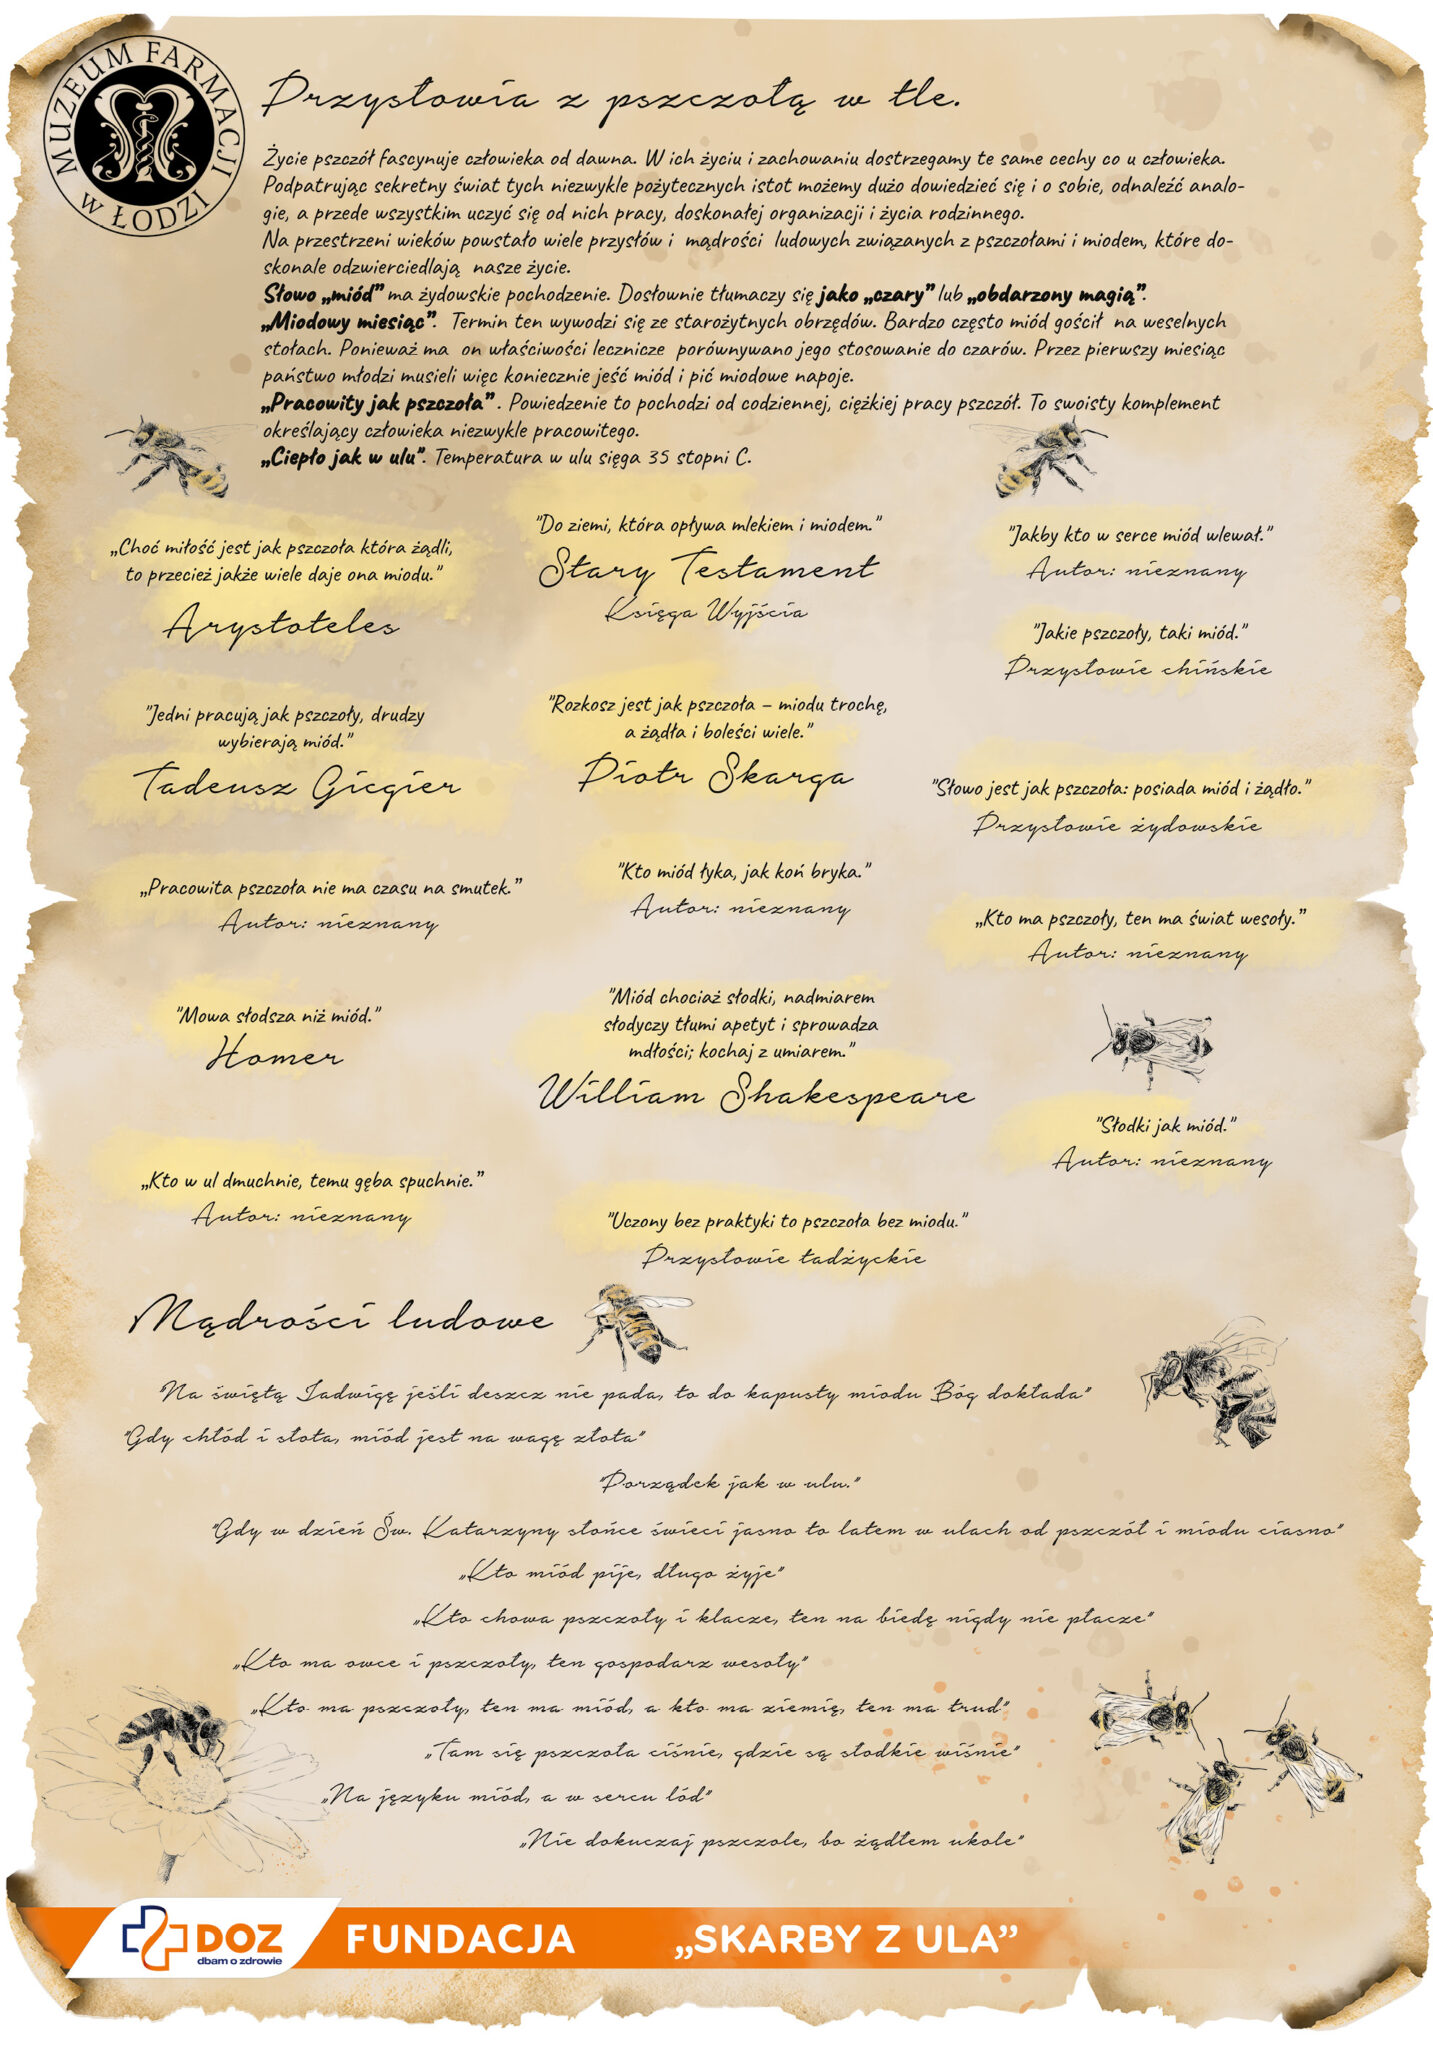 MUZEUM FARMACJI
W ŁODZI
Przysłowia z pszczołą w tle.
Życie pszczół fascynuje człowieka od dawna. W ich życiu i zachowaniu dostrzegamy te same cechy co u człowieka.
Podpatrując sekretny świat tych niezwykle pożytecznych istot możemy dużo dowiedzieć się i o sobie, odnaleźć analo-
gie, a przede wszystkim uczyć się od nich pracy, doskonałej organizacji i życia rodzinnego.
Na przestrzeni wieków powstało wiele przysłów i mądrości ludowych związanych z pszczołami i miodem, które do-
skonale odzwierciedlają nasze życie.
Słowo „miód” ma żydowskie pochodzenie. Dosłownie tłumaczy się jako „czary” lub „obdarzony magią”.
„Miodowy miesiąc”. Termin ten wywodzi się ze starożytnych obrzędów. Bardzo często miód gościł na weselnych
stołach. Ponieważ ma on właściwości lecznicze porównywano jego stosowanie do czarów. Przez pierwszy miesiąc
państwo młodzi musieli więc koniecznie jeść miód i pić miodowe napoje.
„Pracowity jak pszczoła” . Powiedzenie to pochodzi od codziennej, ciężkiej pracy pszczół. To swoisty komplement
określający człowieka niezwykle pracowitego.
„Ciepło jak w ulu”. Temperatura w ulu sięga 35 stopni C.
„Choć miłość jest jak pszczoła która żądli,
to przecież jakże wiele daje ona miodu.”
Arystoteles
"Jedni pracują jak pszczoły, drudzy
wybierają miód."
Tadeusz Gicgier
„Pracowita pszczoła nie ma czasu na smutek.”
Autor: nieznany
"Mowa słodsza niż miód."
Homer
„Kto w ul dmuchnie, temu gęba spuchnie.”
Autor: nieznany
"Do ziemi, która opływa mlekiem i miodem."
Stary Testament
Księga Wyjścia
"Rozkosz jest jak pszczoła – miodu trochę,
a żądła i boleści wiele."
Piotr Skarga
"Kto miód łyka, jak koń bryka."
Autor: nieznany
"Miód chociaż słodki, nadmiarem
słodyczy tłumi apetyt i sprowadza
mdłości; kochaj z umiarem."
William Shakespeare
"Uczony bez praktyki to pszczoła bez miodu."
Przysłowie tadżyckie
"Jakby kto w serce miód wlewał."
Autor: nieznany
"Jakie pszczoły, taki miód."
Przysłowie chińskie
"Słowo jest jak pszczoła: posiada miód i żądło."
Przysłowie żydowskie
„Kto ma pszczoły, ten ma świat wesoły.”
Autor: nieznany
"Słodki jak miód."
Autor: nieznany
Mądrości ludowe
"Na świętą Jadwigę jeśli deszcz nie pada, to do kapusty miodu Bóg dokłada"
"Gdy chłód i słota, miód jest na wagę złota"
"Porządek jak w ulu."
"Gdy w dzień Św. Katarzyny słońce świeci jasno to latem w ulach od pszczół i miodu ciasno"
„Kto miód pije, długo żyje”
„Kto chowa pszczoły i klacze, ten na biedę nigdy nie płacze”
„Kto ma owce i pszczoły, ten gospodarz wesoły”
„Kto ma pszczoły, ten ma miód, a kto ma ziemię, ten ma trud”
„Tam się pszczoła ciśnie, gdzie są słodkie wiśnie”
„Na języku miód, a w sercu lód”
„Nie dokuczaj pszczole, bo żądłem ukole”
DOZ
dbam o zdrowie
FUNDACJA „SKARBY Z ULA”